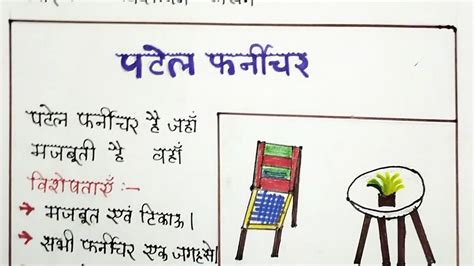 पटेल फर्नीचर
पटेल फर्नीचर है जहाँ
मजबूती है वहाँ
विशेषताएँ :-
→ मजबूत एवं टिकाऊ।
→ सभी फर्नीचर एक जगह से।